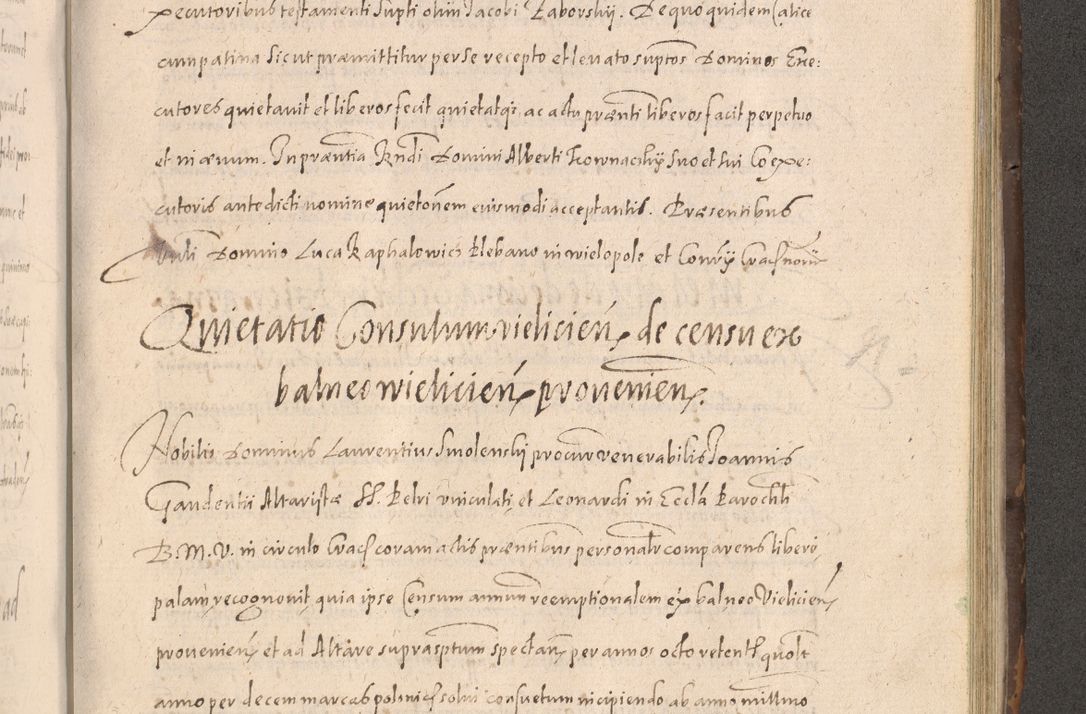 xecutoribus testamenti supti olim Jacobi Zaborskij. De quo quidem Calice
cum patina sicut præmittitur per se recepto et levato suptos Dominos Exe:
cutores quietavit et liberos fecit quietatqi ac actu præntj liberos facit perpetuo
et in ævum. In præntia Rndi Domini Alberti suo et sui Coexe:
cutoris antedicti nomine quietonem eiusmodi acceptantis. Præsentibus
Domino Luca Raphalowicz Plebano in wielopole et
Quietatio Consulum vieliciens de censu ex
balneo wielicien provenien.
Nobilis Dominus Laurentius Smolenskij procur venerabilis Joannis
Gaudentii Altaristæ SS. Petri vinculati et Leonardi in Eccla Parochli
B. M. V. in circulo Crac coram actis præntibus personalr comparens libere
palam recognovit quia ipse Censum annum reemptionalem ex balneo Vielicien
provenien et ad Altare suprasptum spectan per annos octo retent quolt
anno per decem marcas polonic solvi consuetum incipiendo ab anno millmo